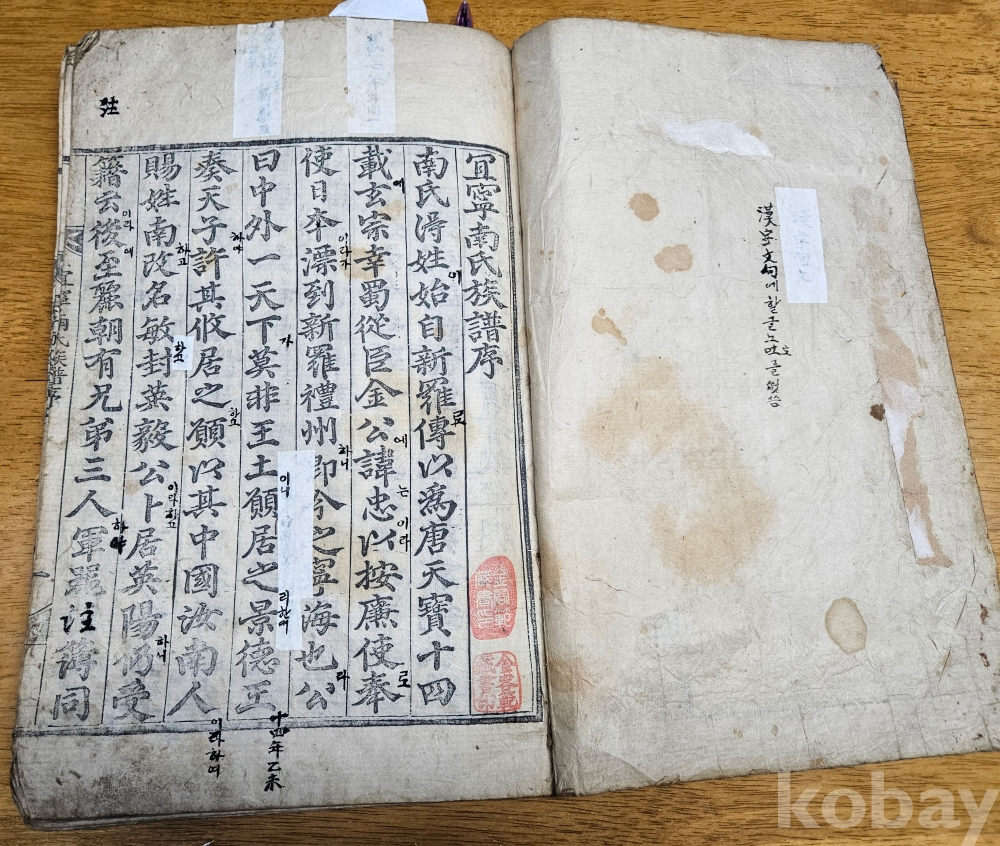 漢字文句에 할글
宜寧南氏族譜序
南氏淂姓始自新羅傳以爲唐天寶十四
이
載玄宗幸蜀從臣金公諱忠以按廉使奉
에
에
는이라
로
使日本漂到新羅禮州卽今之寧海也公
이다가
하니
다
曰中外一天下莫非王土願居之景德王
가
이니
리하여
十四年乙未
奏天子許其攸居之願以其中國汝南人
하야
이라하여
賜姓南改名敏封英毅公卜居英陽仍受
하고
이라하고
하니
籍云後至麗朝有兄弟三人軍器注簿同
이라
에
하야
kobay